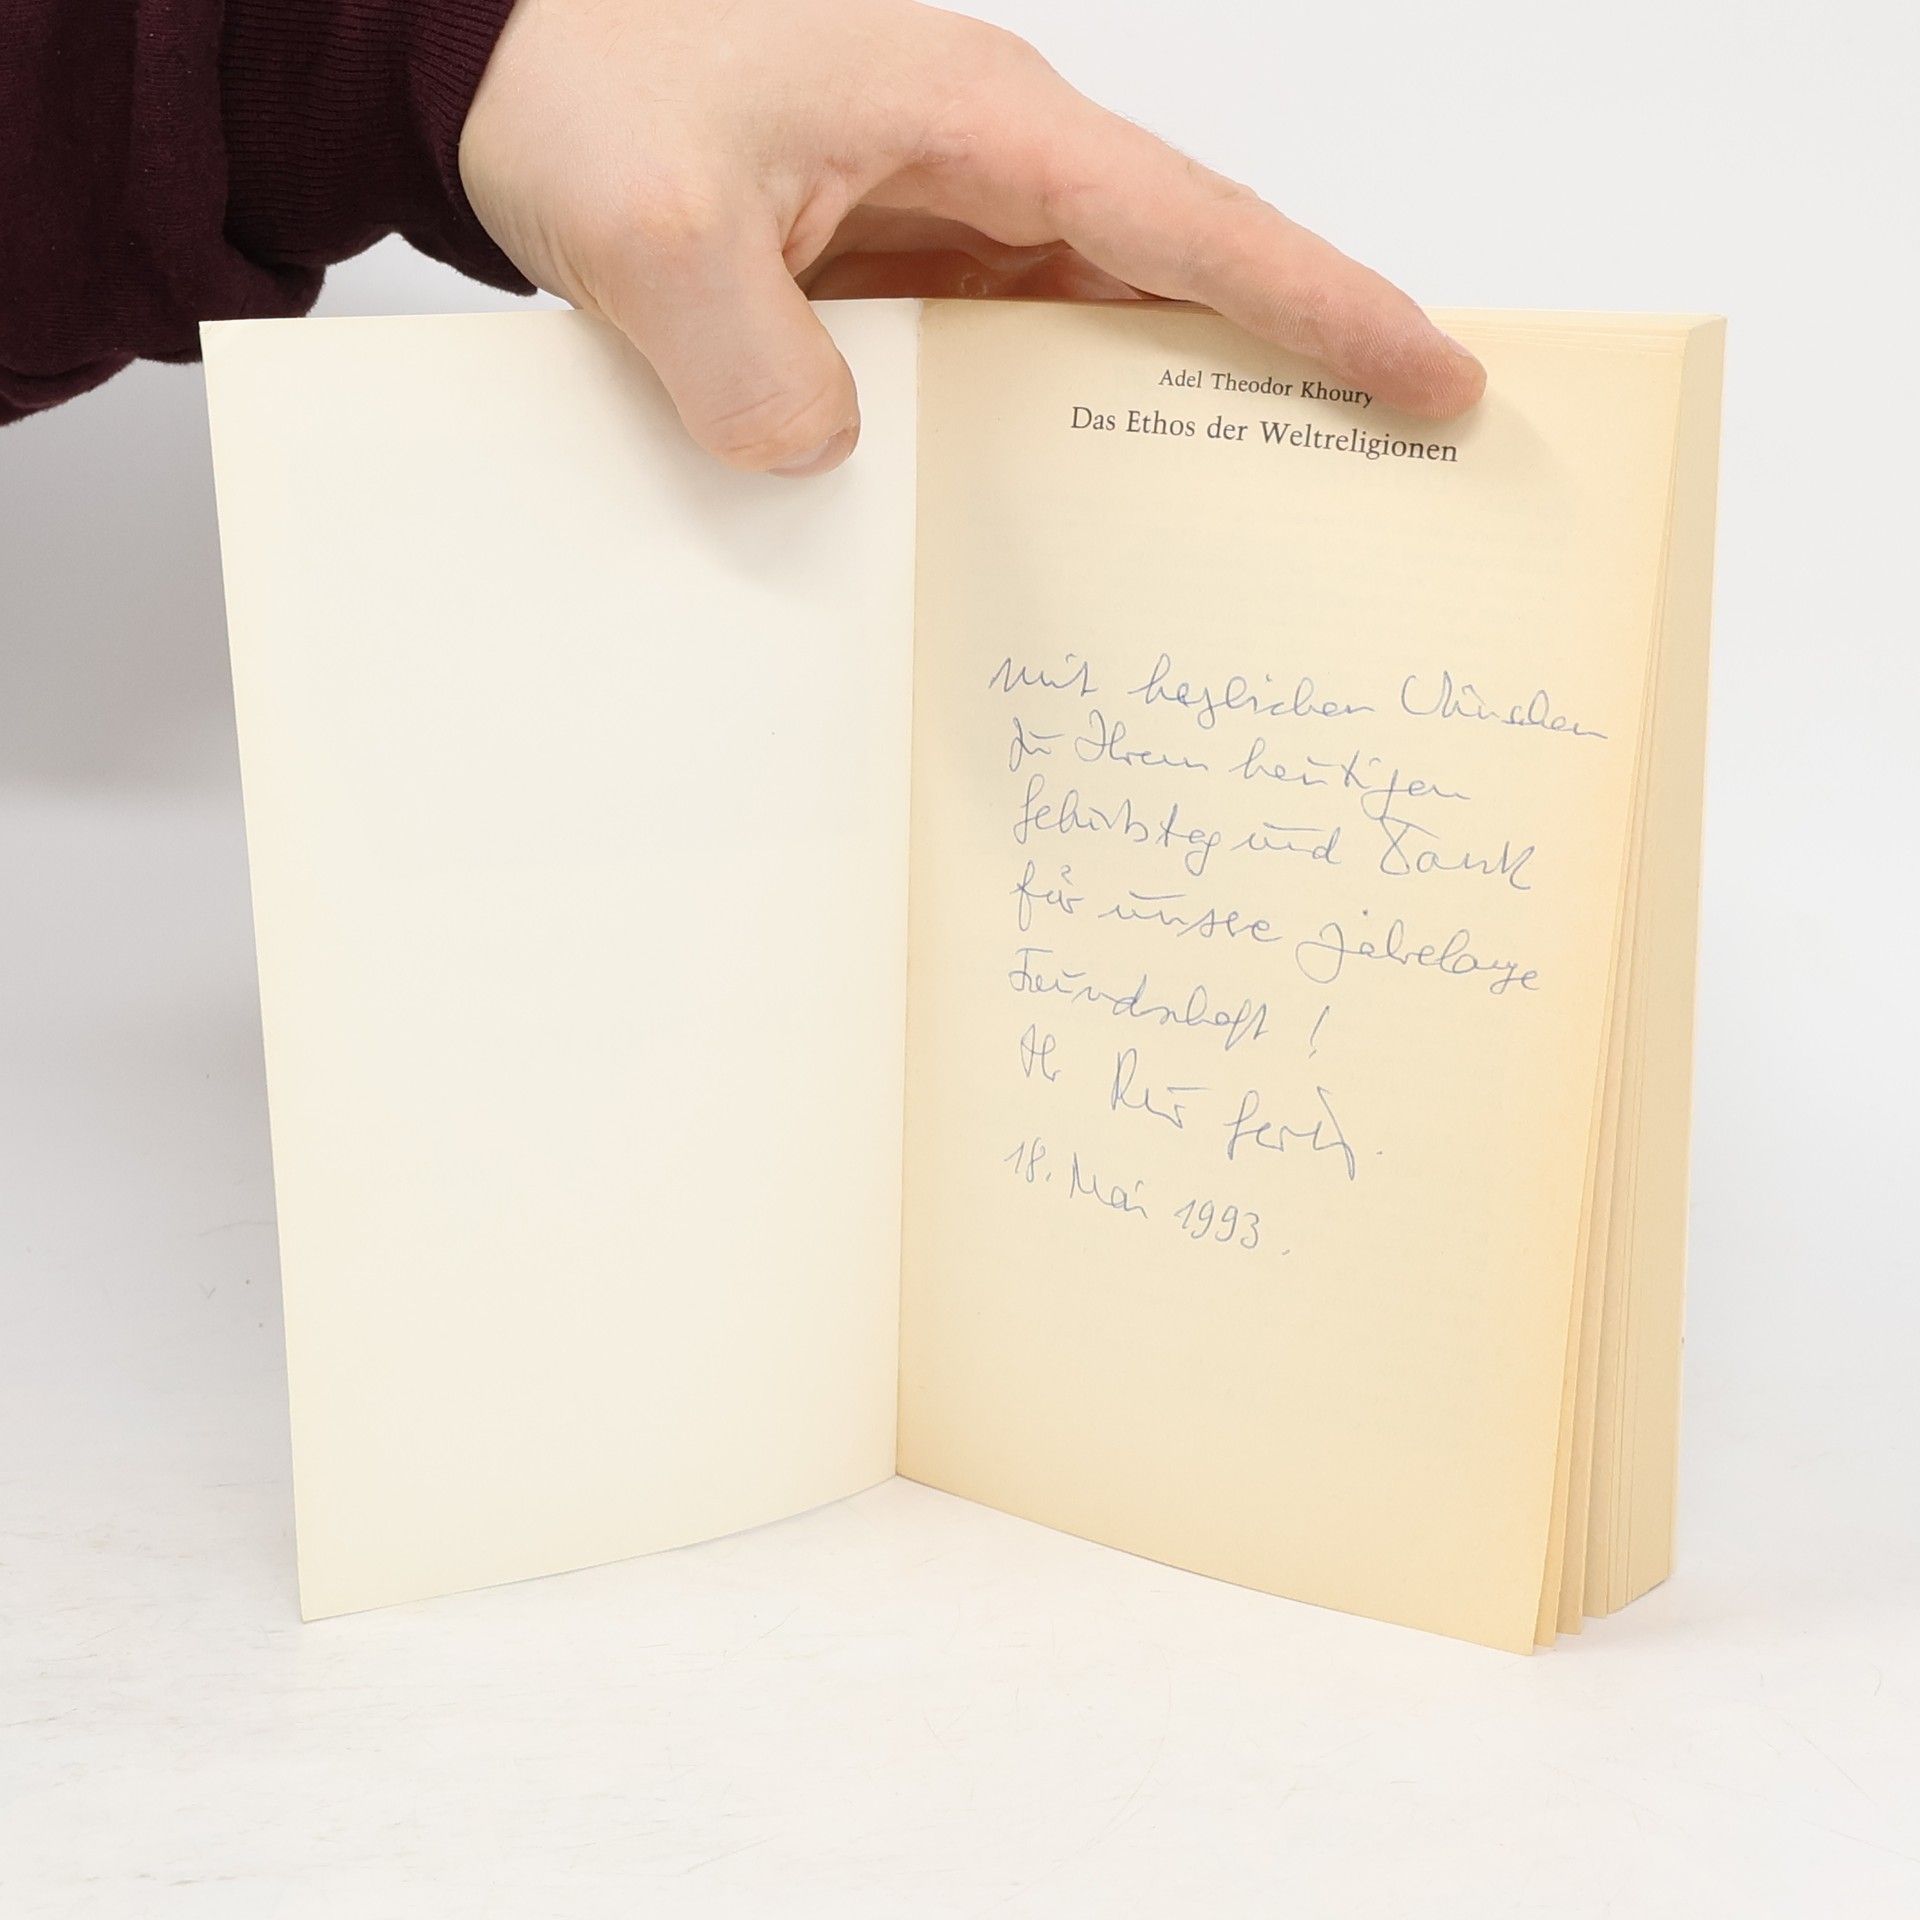 Adel Theodor Khoury
Das Ethos der Weltreligionen
mit herzlichen Wünschen
zu Ihrem heutigen
Geburtstag und Dank
für unsere jahrelange
Freundschaft !
Ihr
18. Mai 1993.